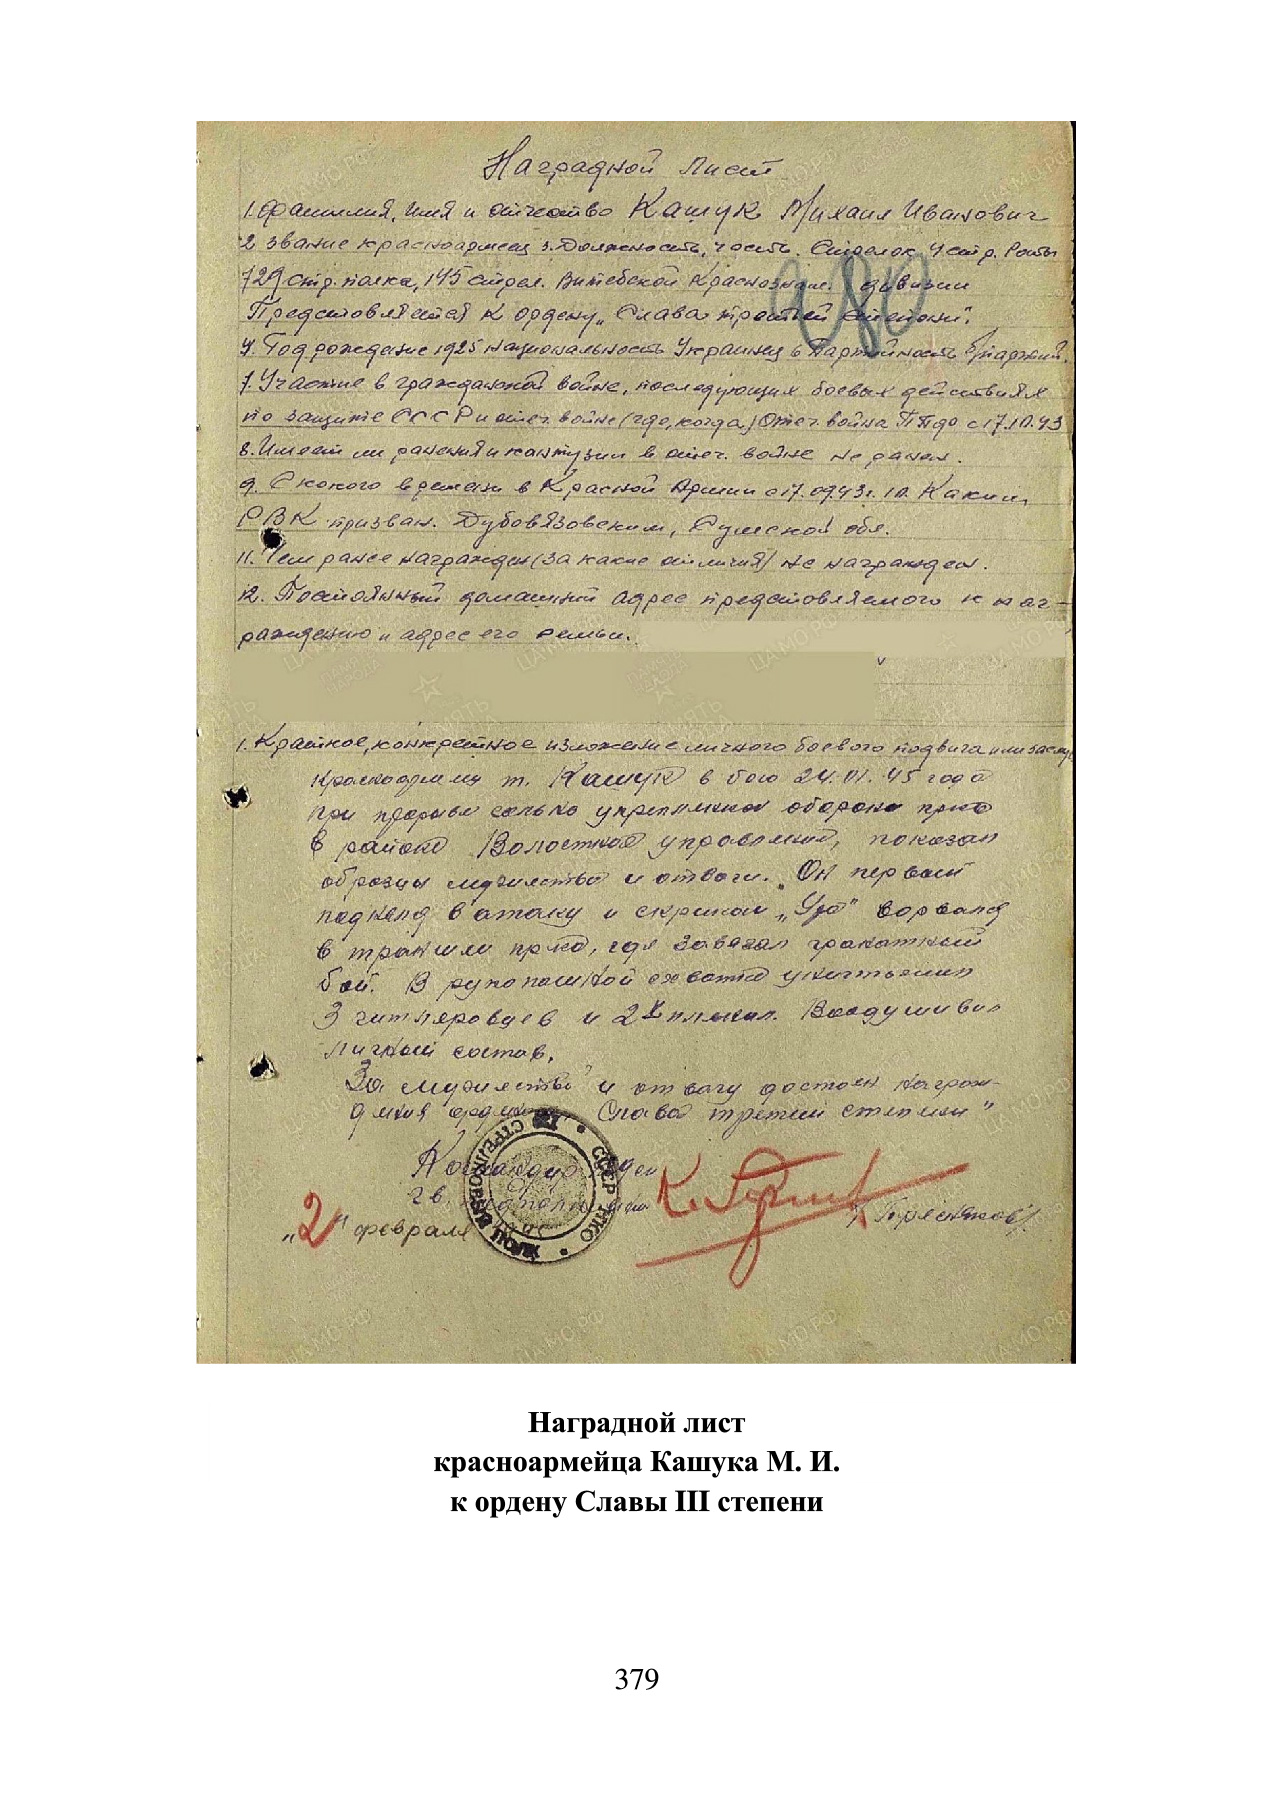 Наградной лист
1. Фамилия, имя и отчество Кашук Михаил Иванович
2 звание красноармеец 3. Должность, часть. Стрелок, 4 стр. Роты
729 стр. полка, 145 стрел. Витебской Краснознам. дивизии
Предстовляется к ордену „Слава третьей степени".
4. Год рождение 1925 национальность Украинец 6 Партийность б/партий.
7. Участие в гражданской войне, последующих боевых действиях
по защите СССР и отеч. войне (где, когда) Отеч. война с 17.10.43
8. Имеет ли ранения и контузии в отеч. войне не ранен.
9. С какого времени в Красной Армии с 17.09.43г. 10. Каким
РВК призван. Дубовязовским, Сумской обл.
11. Чем ранее награжден (за какие отличия) не награжден.
12. Постоянный домашний адрес предстовляемого к наг-
раждению и адрес его семьи.
1. Краткое, конкретное изложение личного боевого подвига или заслуг
Красноармеец т. Кашук в бою 24.01.45 года
при прорыве сильно укрепленной обороны пр-ка
в районе Волостное управление, показал
образцы мужества и отваги. Он первый
поднялся в атаку и с криком „Ура" ворвался
в траншеи пр-ка, где завязал гранатный
бой. В рукопашной схватке уничтожил
3 гитлеровцев и 2х пленил. Воодушевил
личный состав.
За мужество и отвагу достоин награж-
дения ордена Слава третьей степени"
Командир
гв.
„2" февраля
СССР НКО СТРЕЛКОВЫЙ ПОЛК
480
Наградной лист
красноармейца Кашука М. И.
к ордену Славы III степени
379